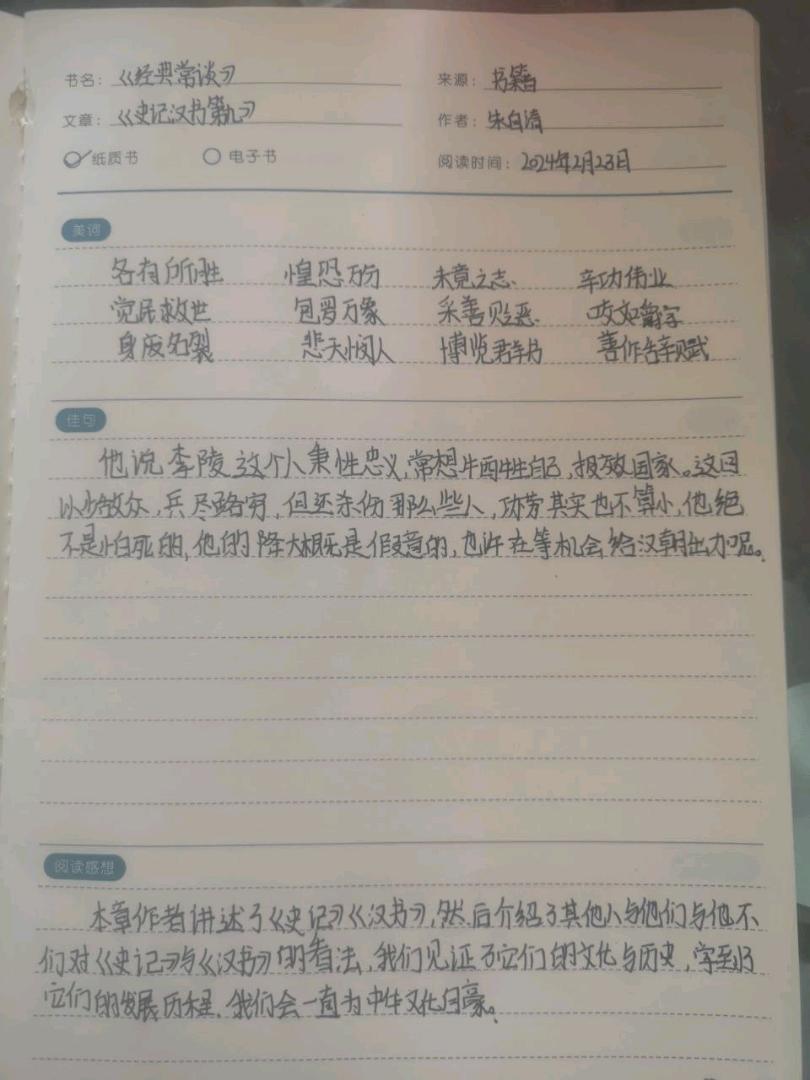 书名：《经典常谈》 来源：书籍
文章：《史记汉书第九》 作者：朱自清
纸质书 电子书 阅读时间：2024年2月23日
美词
各有所胜 惶恐万分 未竟之志 辛功伟业
觉民救世 包罗万象 采善贬恶 咬文嚼字
身废名裂 悲天悯人 博览群书 善作辞赋
佳句
他说李陵这个人秉性忠义，常想牺牲自己，报效国家。这回
以少敌众，兵尽路穷，但还杀伤那么些人，功劳其实也不算小，他绝
不是怕死的，他的降大概是假意的，也许在等机会给汉朝出力呢。
阅读感想
本章作者讲述了《史记》《汉书》，然后介绍了其他人与他们与他不
们对《史记》与《汉书》的看法，我们见证了它们的文化与历史，学到了
它们的发展历程，我们会一直为中华文化自豪。